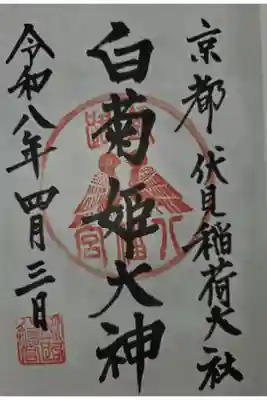 京都 伏見稲荷大社
白菊姫大神
令和八年四月三日